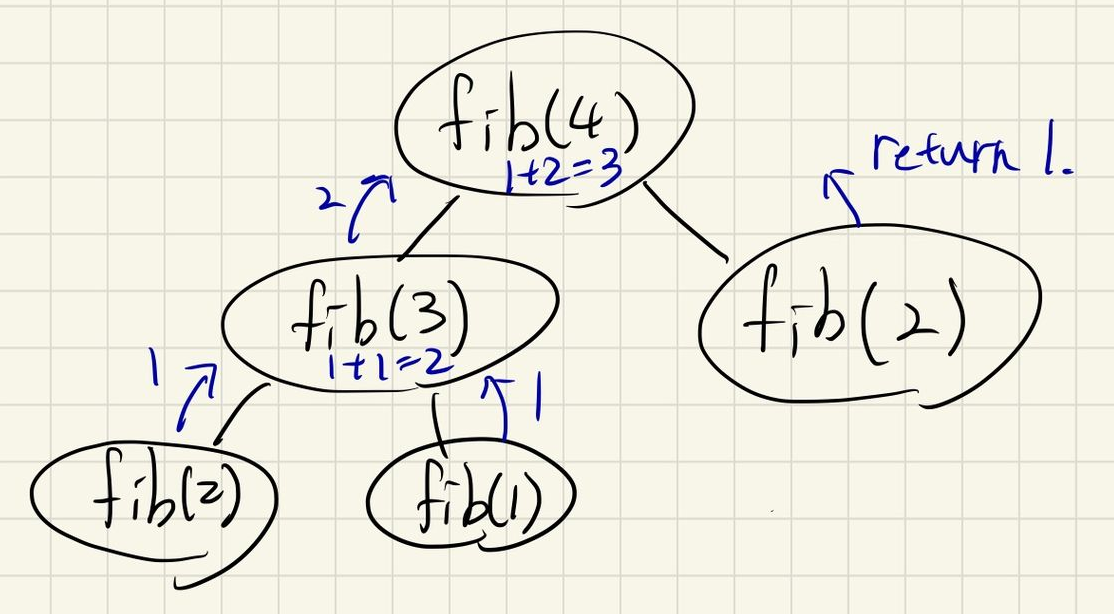 fib(4)
1+2=3
return 1.
2
fib(3)
1+1=2
fib(2)
1
1
fib(2)
fib(1)